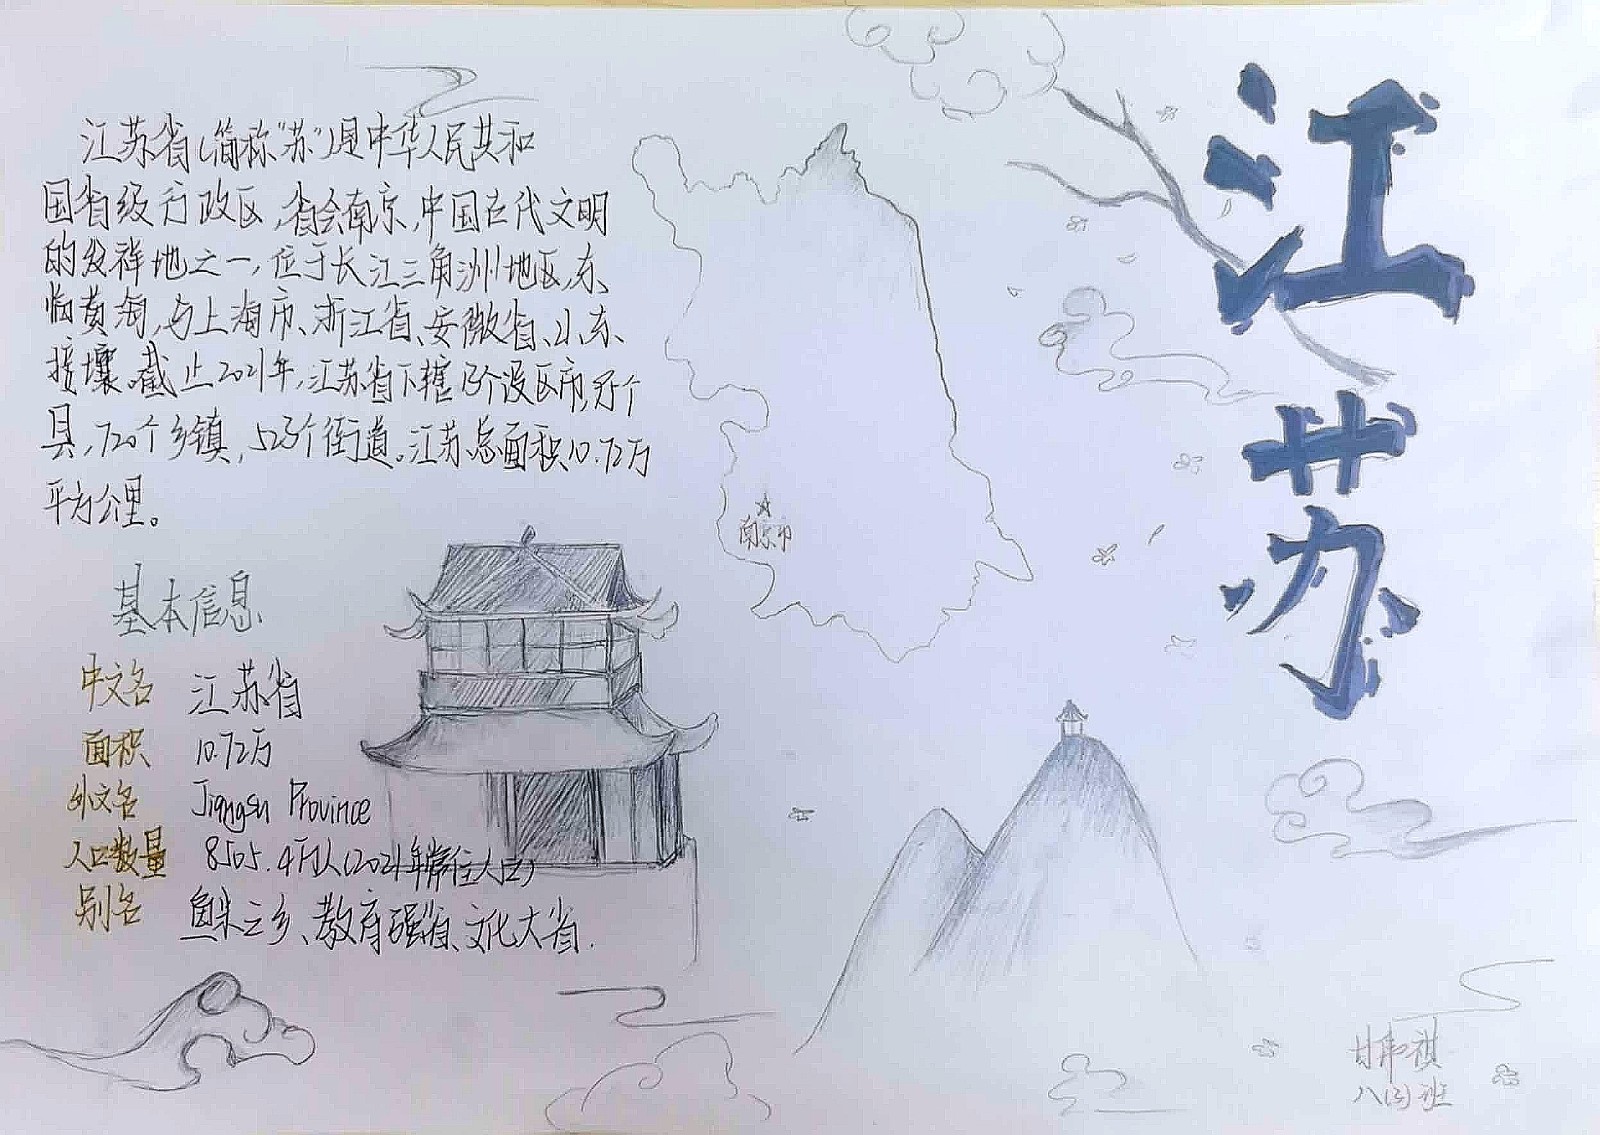 江苏
江苏省(简称"苏")是中华人民共和
国省级行政区,省会南京,中国古代文明
的发祥地之一,位于长江三角洲地区,东
临黄海,与上海市、浙江省、安徽省、山东
接壤。截止2021年,江苏省下辖13个设区市,
县,720个乡镇,523个街道。江苏总面积10.72万
平方公里。
南京市
基本信息
中文名 江苏省
面积 10.72万
外文名 Jiangsu Province
人口数量 8505.4万人(2021年常住人口)
别名 鱼米之乡、教育强省、文化大省.
八(3)班